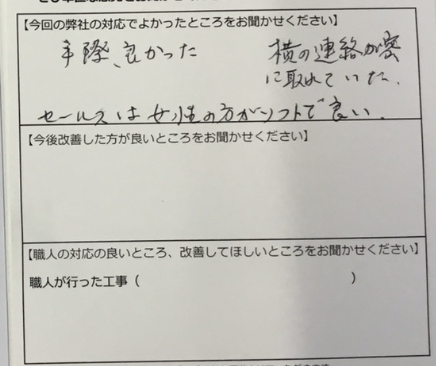 【今回の弊社の対応でよかったところをお聞かせください】
手際、良かった 横の連絡が密
に取れていた。
セールスは女性の方がソフトで良い.
【今後改善した方が良いところをお聞かせください】
【職人の対応の良いところ、改善してほしいところをお聞かせください】
職人が行った工事（ ）